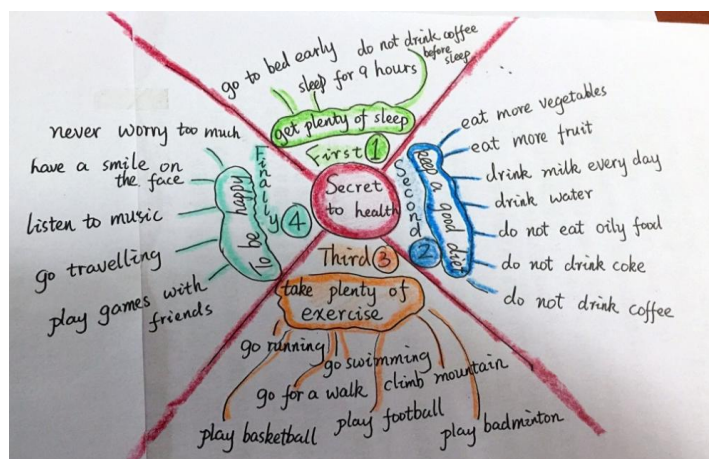 Secret
to health
First 1
get plenty of sleep
go to bed early
sleep for 9 hours
do not drink coffee
before
sleep
Second 2
keep a good diet
eat more vegetables
eat more fruit
drink milk every day
drink water
do not eat oily food
do not drink coke
do not drink coffee
Third 3
take plenty of
exercise
go running
go swimming
climb mountain
go for a walk
play football
play basketball
play badminton
Finally 4
To be happy
never worry too much
have a smile on
the face
listen to music
go travelling
play games with
friends